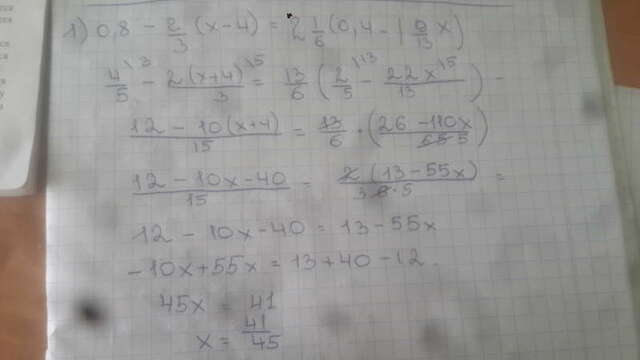 1) 0,8 - 2/3 (x-4) = 2 1/6 (0,4 - 1 9/13 x)
4/5 \3 - 2(x+4)/3 \5 = 13/6 (2/5 \13 - 22x/13 \5) -
12 - 10(x+4)/15 = 13/6 · (26 - 110x/65 5)
12 - 10x - 40/15 = 2(13 - 55x)/3 6·5 =
12 - 10x - 40 = 13 - 55x
-10x + 55x = 13 + 40 - 12.
45x = 41
x = 41/45